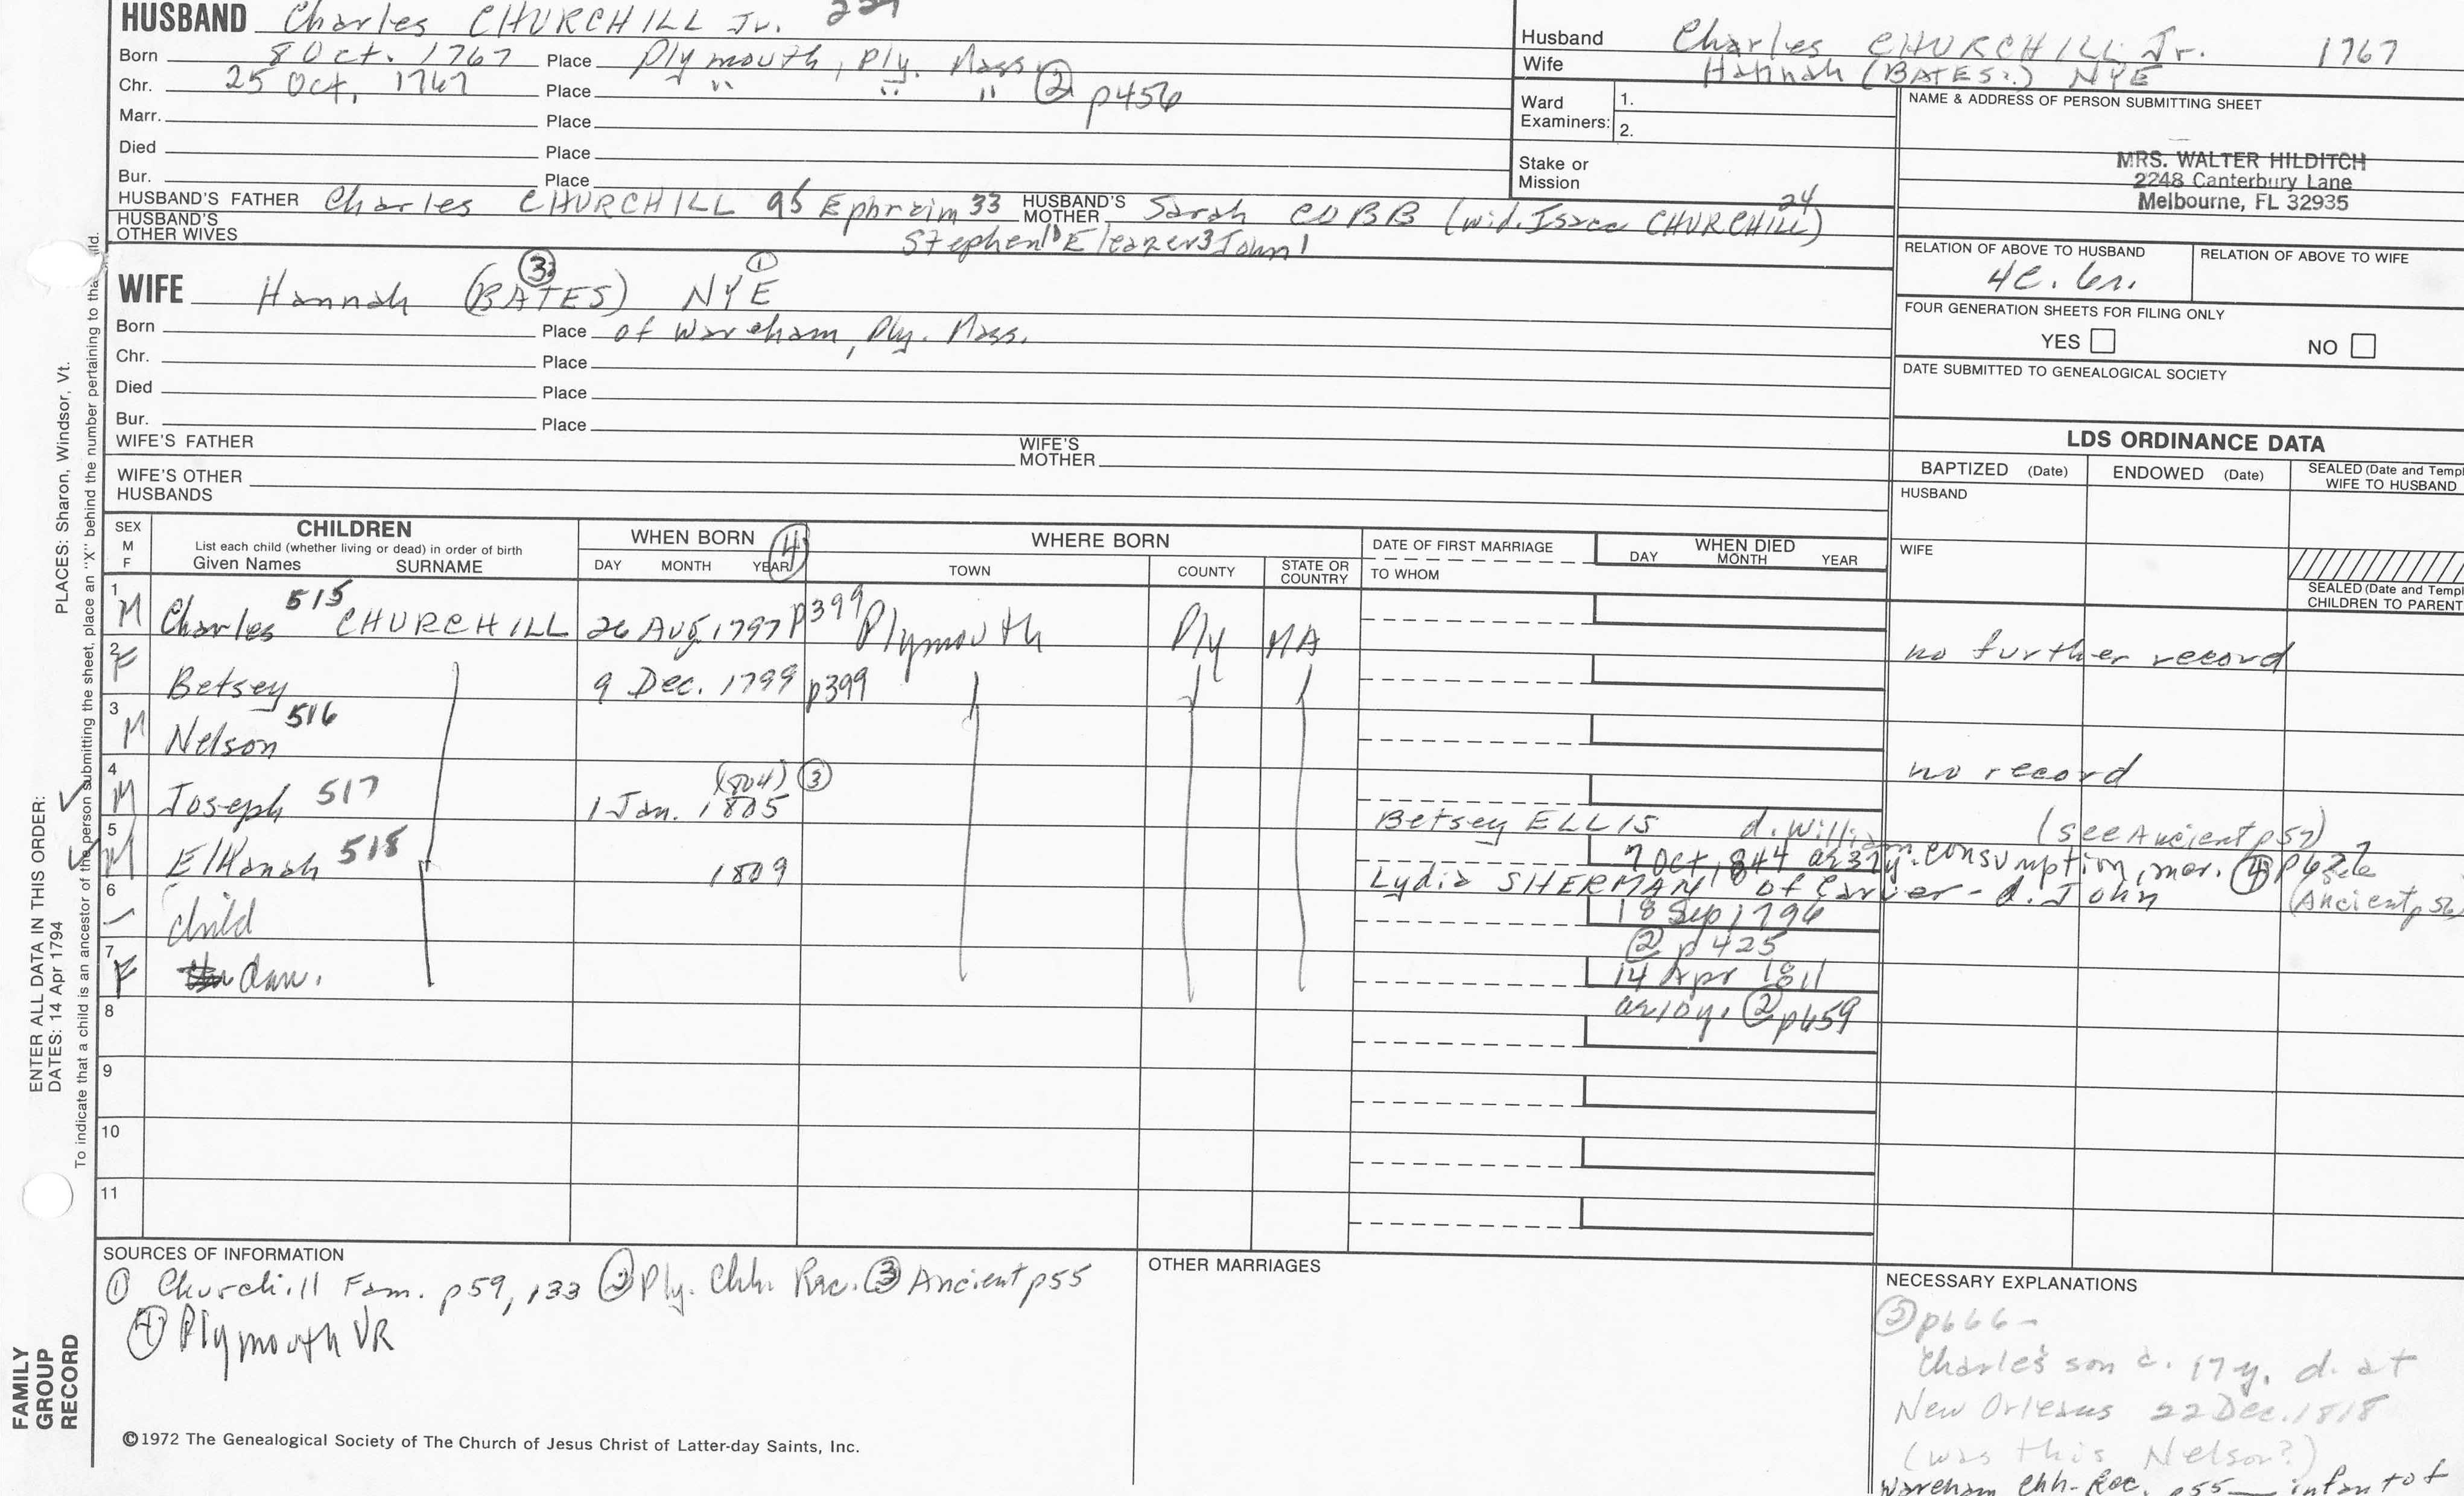 HUSBAND Charles CHURCHILL Jr.
Born 8 Oct. 1767 Place Plymouth, Ply. Mass.
Chr. 25 Oct. 1767 Place " " " ② p456
Marr. Place
Died Place
Bur. Place
HUSBAND'S FATHER Charles CHURCHILL 95 Ephraim 33 HUSBAND'S MOTHER Sarah COBB (wid. Isaac CHURCHILL) 24
HUSBAND'S OTHER WIVES
Stephen Eleazer 3 John 1
WIFE Hannah (BATES) ③ NYE ①
Born Place of Wareham, Ply. Mass.
Chr. Place
Died Place
Bur. Place
WIFE'S FATHER WIFE'S MOTHER
WIFE'S OTHER HUSBANDS
Husband Charles CHURCHILL Jr. 1767
Wife Hannah (BATES?) NYE
Ward Examiners: 1.
2.
Stake or Mission
NAME & ADDRESS OF PERSON SUBMITTING SHEET
MRS. WALTER HILDITCH
2248 Canterbury Lane
Melbourne, FL 32935
RELATION OF ABOVE TO HUSBAND RELATION OF ABOVE TO WIFE
FOUR GENERATION SHEETS FOR FILING ONLY
YES NO
DATE SUBMITTED TO GENEALOGICAL SOCIETY
LDS ORDINANCE DATA
BAPTIZED (Date) ENDOWED (Date) SEALED (Date and Templ
WIFE TO HUSBAND
HUSBAND
WIFE
SEALED (Date and Templ
CHILDREN TO PARENT
SEX M F
CHILDREN
List each child (whether living or dead) in order of birth
Given Names SURNAME
WHEN BORN ④
DAY MONTH YEAR
WHERE BORN
TOWN COUNTY STATE OR COUNTRY
DATE OF FIRST MARRIAGE
TO WHOM
WHEN DIED
DAY MONTH YEAR
1 M Charles 515 CHURCHILL 26 Aug. 1797 p399 Plymouth Ply MA no further record
2 F Betsey 9 Dec. 1799 p399
3 M Nelson 516 no record
4 M Joseph 517 1 Jan. 1805 (1804) ③ Betsey ELLIS d. William (see Ancient p57)
5 M Elkanah 518 1809 7 Oct. 1844 consumption, mar. ④
Lydia SHERMAN of Carver - d. John (Ancient p56
6 child 18 Sep 1796
② p425
7 F dau. 14 Apr 1811
ae 10 y. ② p459
8
9
10
11
SOURCES OF INFORMATION
① Churchill Fam. p59, 133 ② Ply. Chh. Rec. ③ Ancient p55
④ Plymouth VR
OTHER MARRIAGES
NECESSARY EXPLANATIONS
② p666 -
Charles son ae. 17 y. d. at
New Orleans 22 Dec. 1818
(was this Nelson?)
Wareham Chh. Rec. p55 — infant of
©1972 The Genealogical Society of The Church of Jesus Christ of Latter-day Saints, Inc.
FAMILY GROUP RECORD
ENTER ALL DATA IN THIS ORDER:
DATES: 14 Apr 1794
PLACES: Sharon, Windsor, Vt.
To indicate that a child is an ancestor of the person submitting the sheet, place an "X" behind the number pertaining to that child.